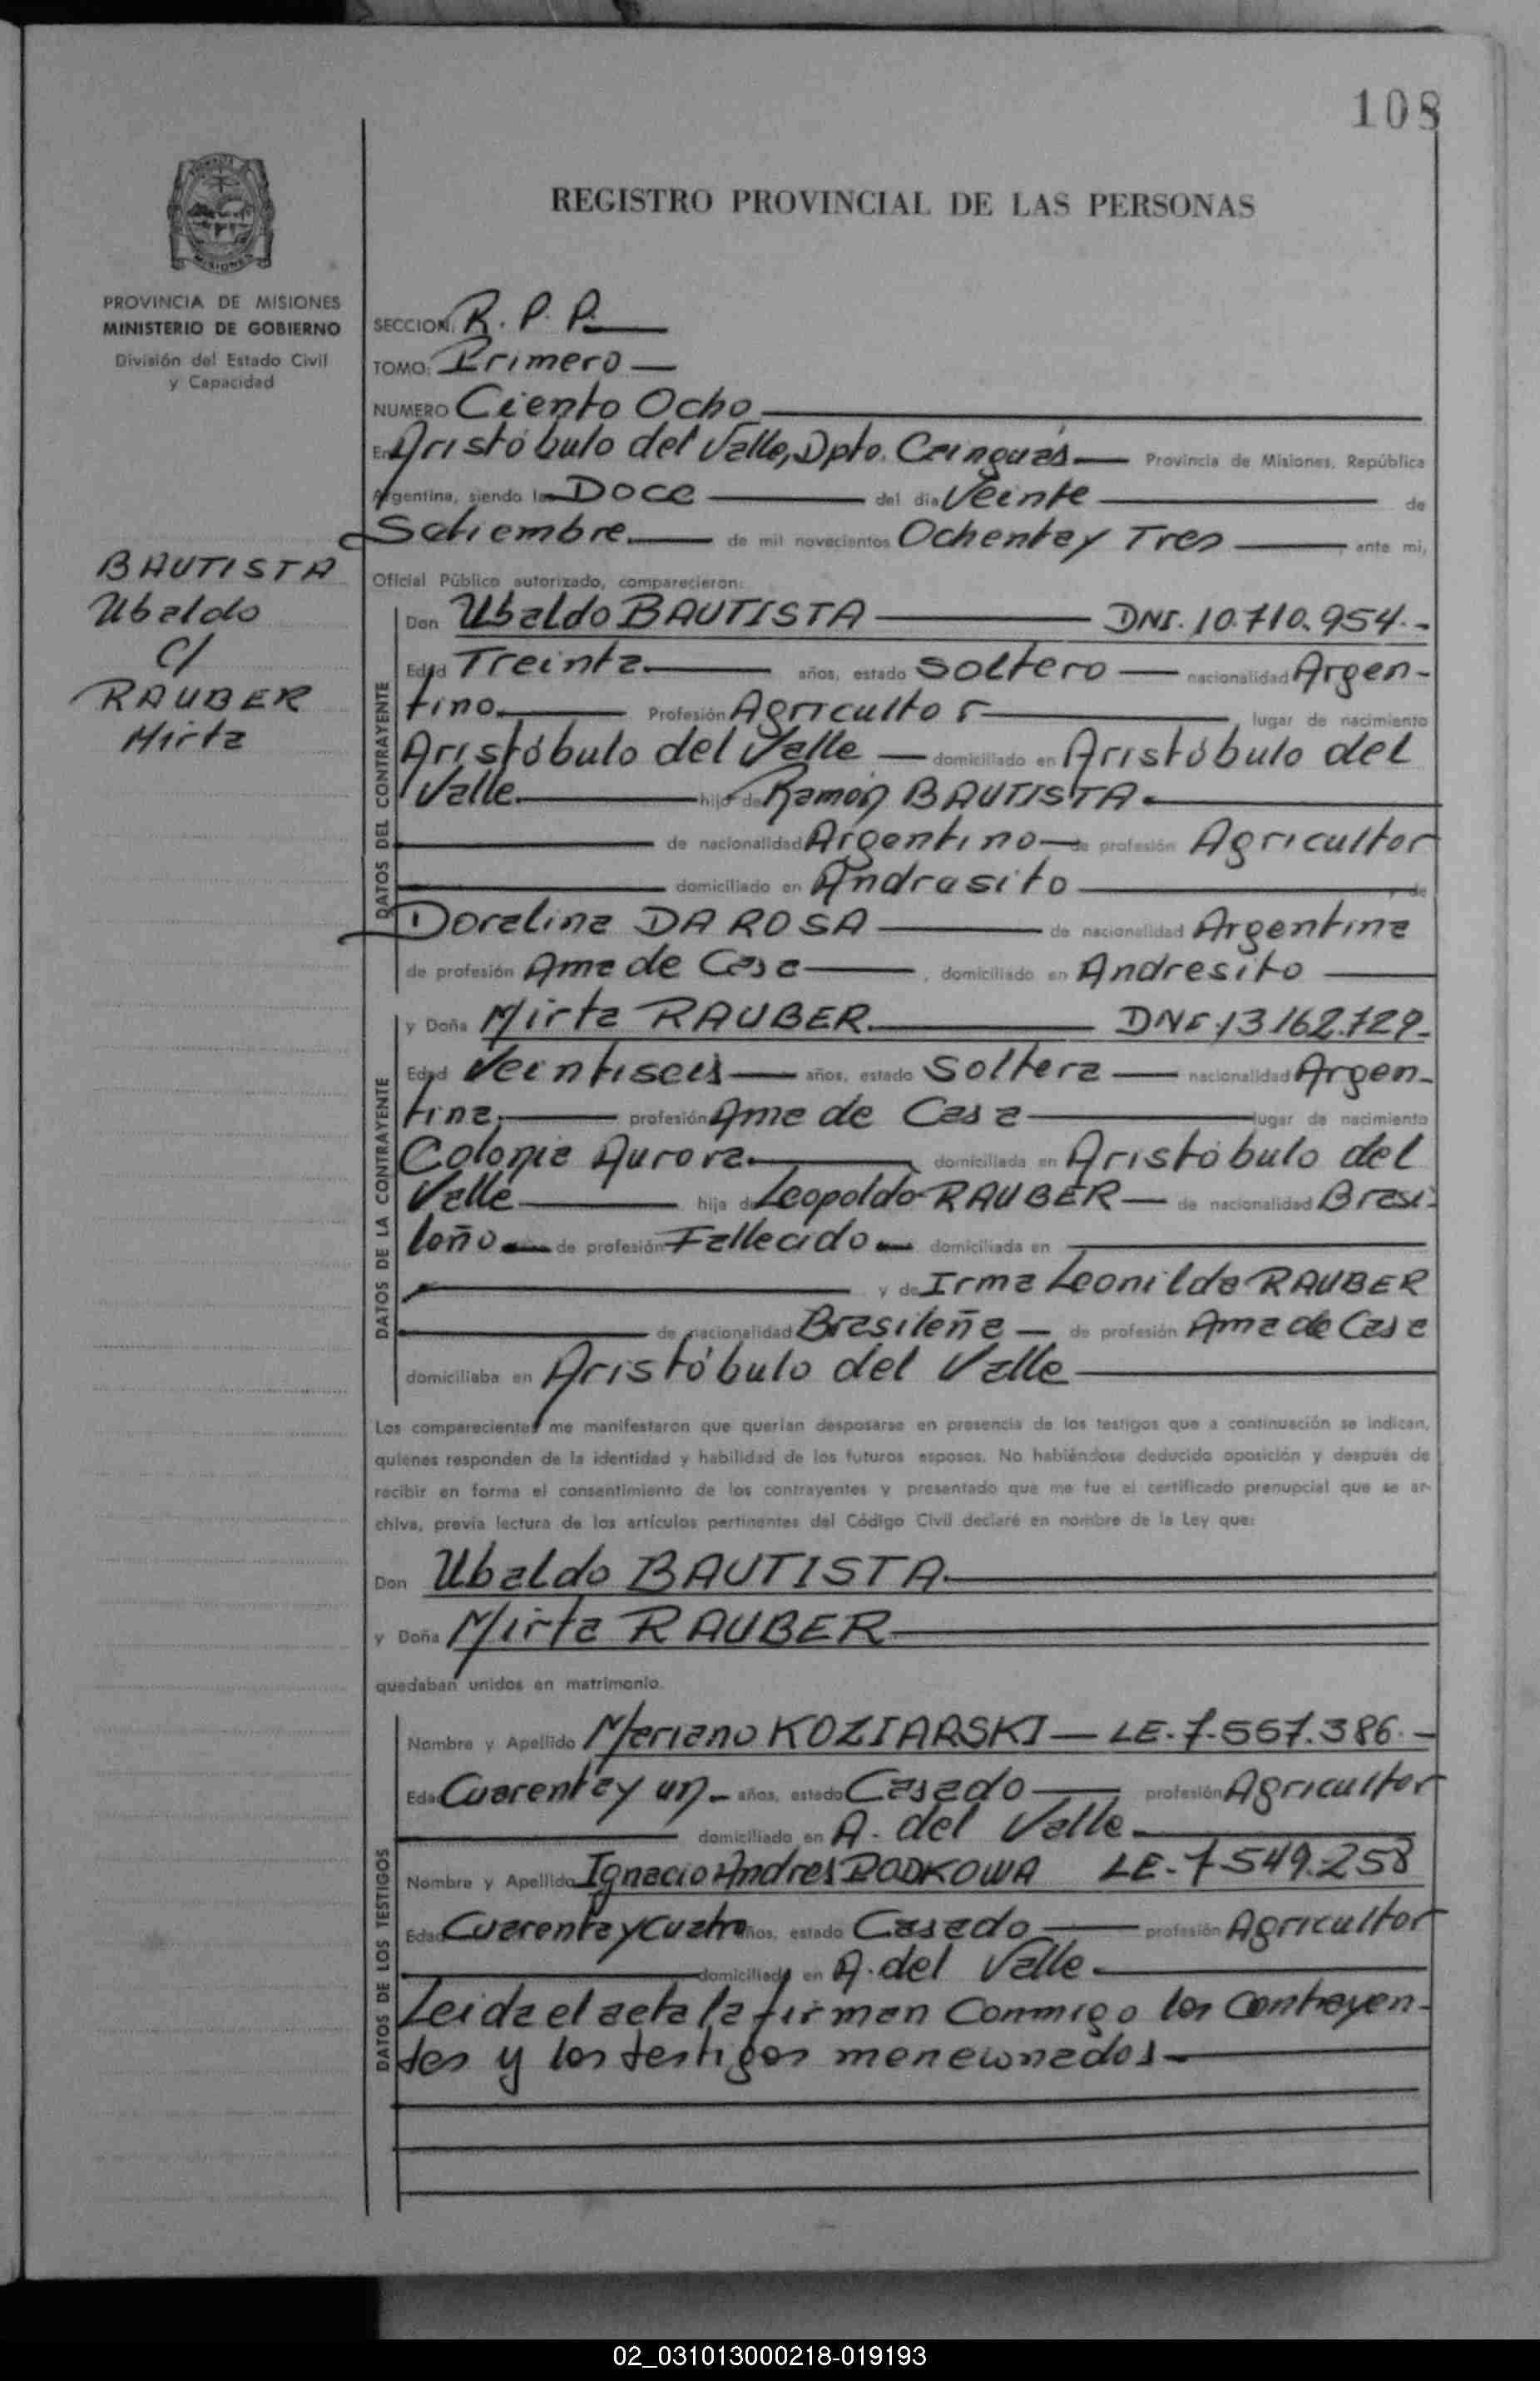 108
REGISTRO PROVINCIAL DE LAS PERSONAS
MISIONES
PROVINCIA DE MISIONES
MINISTERIO DE GOBIERNO
División del Estado Civil
y Capacidad
BAUTISTA
Ubaldo
C/
RAUBER
Mirta
SECCION: R. P. P.
TOMO: Primero
NUMERO Ciento Ocho
En Aristóbulo del Valle, Dpto. Cainguás Provincia de Misiones, República
Argentina, siendo las Doce del día Veinte de
Setiembre. de mil novecientos Ochenta y Tres ante mi,
Oficial Público autorizado, comparecieron:
DATOS DEL CONTRAYENTE
Don Ubaldo BAUTISTA DNI. 10.710.954.-
Edad Treinta. años, estado Soltero nacionalidad Argen-
tino. Profesión Agricultor lugar de nacimiento
Aristóbulo del Valle domiciliado en Aristóbulo del
Valle. hijo de Ramón BAUTISTA.
de nacionalidad Argentino de profesión Agricultor
domiciliado en Andresito y de
Doralina DA ROSA de nacionalidad Argentina
de profesión Ama de Casa, domiciliado en Andresito
DATOS DE LA CONTRAYENTE
y Doña Mirta RAUBER. DNI. 13.162.729.-
Edad Veintiseis años, estado Soltera nacionalidad Argen-
tina. profesión Ama de Casa lugar de nacimiento
Colonia Aurora. domiciliada en Aristóbulo del
Valle hija de Leopoldo RAUBER de nacionalidad Brasi-
leño de profesión Fallecido domiciliada en
y de Irma Leonilda RAUBER
de nacionalidad Brasileña de profesión Ama de Casa
domiciliaba en Aristóbulo del Valle
Los comparecientes me manifestaron que querían desposarse en presencia de los testigos que a continuación se indican,
quienes responden de la identidad y habilidad de los futuros esposos. No habiéndose deducido oposición y después de
recibir en forma el consentimiento de los contrayentes y presentado que me fue el certificado prenupcial que se ar-
chiva, previa lectura de los artículos pertinentes del Código Civil declaré en nombre de la Ley que:
Don Ubaldo BAUTISTA.
y Doña Mirta RAUBER
quedaban unidos en matrimonio.
DATOS DE LOS TESTIGOS
Nombre y Apellido Mariano KOZIARSKI - LE. 7.557.386.-
Edad Cuarenta y un.- años, estado Casado profesión Agricultor
domiciliado en A. del Valle.
Nombre y Apellido Ignacio Andres PODKOWA LE. 7.549.258
Edad Cuarenta y Cuatro años, estado Casado profesión Agricultor
domiciliado en A. del Valle.
Leida el acta la firman Conmigo los Contrayen-
tes y los testigos mencionados.-
02_031013000218-019193